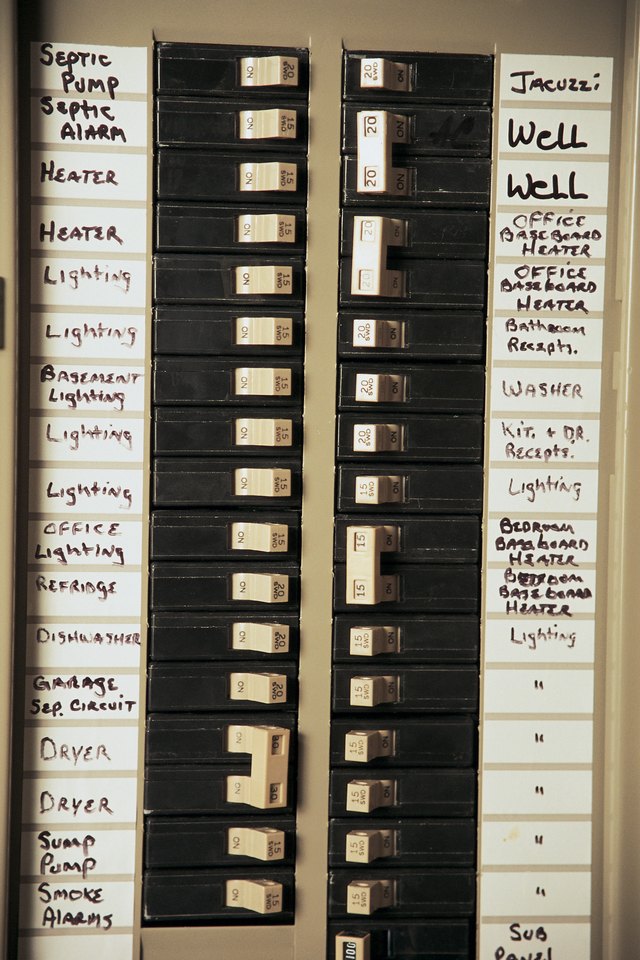 SEPTIC
PUMP
SEPTIC
ALARM
HEATER
HEATER
Lighting
Lighting
BASEMENT
Lighting
Lighting
Lighting
OFFICE
Lighting
REFRIDGE
DISHWASHER
GARAGE
SEP. CIRCUIT
DRYER
DRYER
SUMP
PUMP
SMOKE
ALARMS
ON 20 SWD
ON 15 SWD
ON 15 SWD
ON 15 SWD
ON 15 SWD
ON 15 SWD
ON 15 SWD
ON 15 SWD
ON 15 SWD
ON 15 SWD
ON 20 SWD
ON 20 SWD
ON 20 SWD
ON 30
ON 30
ON 15 SWD
ON 15 SWD
20 SWD ON
20 ON
20 ON
20 ON
20 ON
20 SWD ON
20 SWD ON
20 SWD ON
15 SWD ON
15 ON
15 ON
15 SWD ON
15 SWD ON
15 SWD ON
15 SWD ON
15 SWD ON
15 SWD ON
100
JACUZZi
WELL
WELL
OFFICE
BASEBOARD
HEATER
OFFICE
BASEBOARD
HEATER
Bathroom
Recepts.
WASHER
KIT. + DR.
RECEPTS.
Lighting
BEDROOM
BASEBOARD
HEATER
BEDROOM
BASEBOARD
HEATER
Lighting
"
"
"
"
"
SUB
PANEL